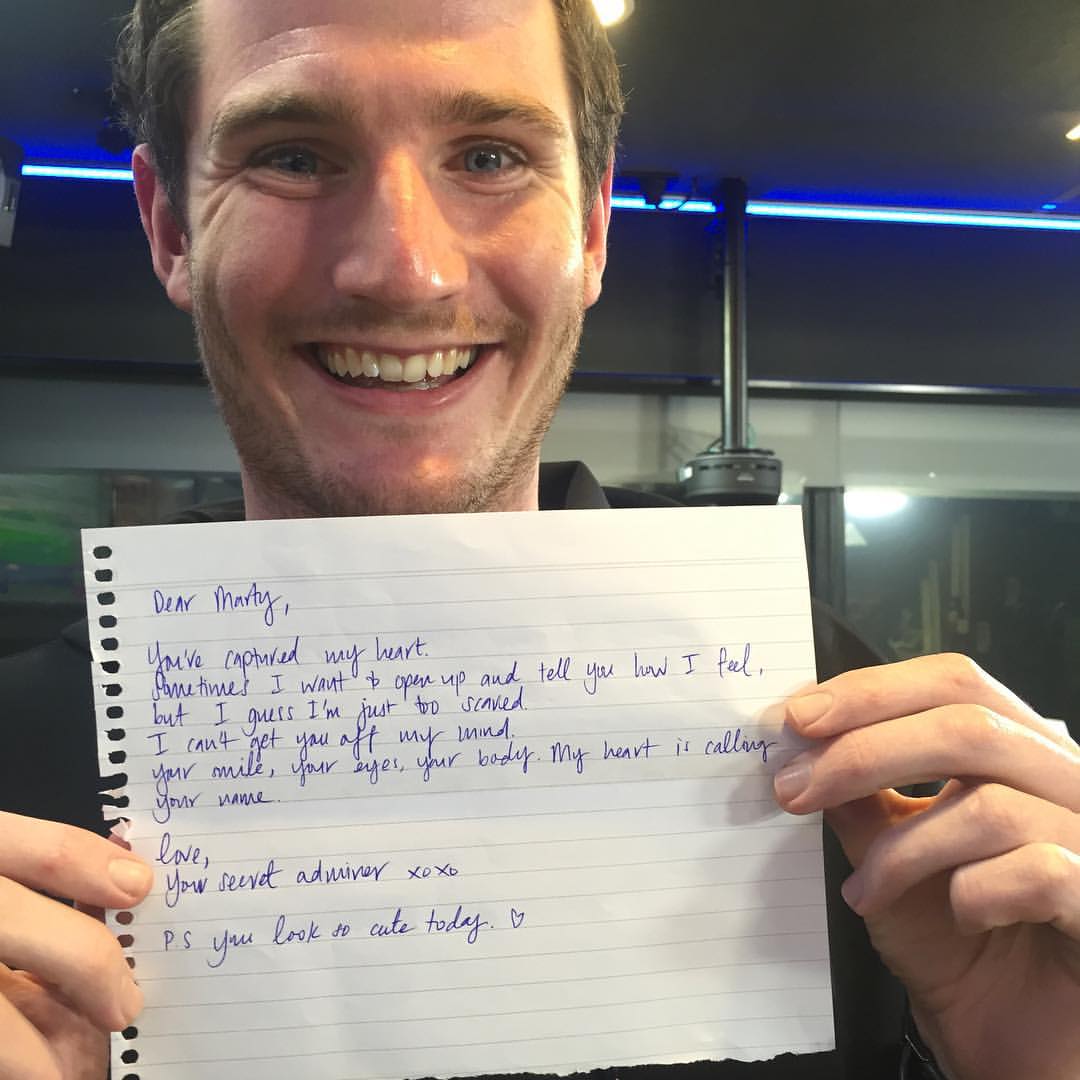 Dear Marty,
You've captured my heart.
Sometimes I want to open up and tell you how I feel,
but I guess I'm just too scared.
I can't get you off my mind.
your smile, your eyes, your body. My heart is calling
your name.
love,
Your secret admirer xoxo
PS you look so cute today. ♡